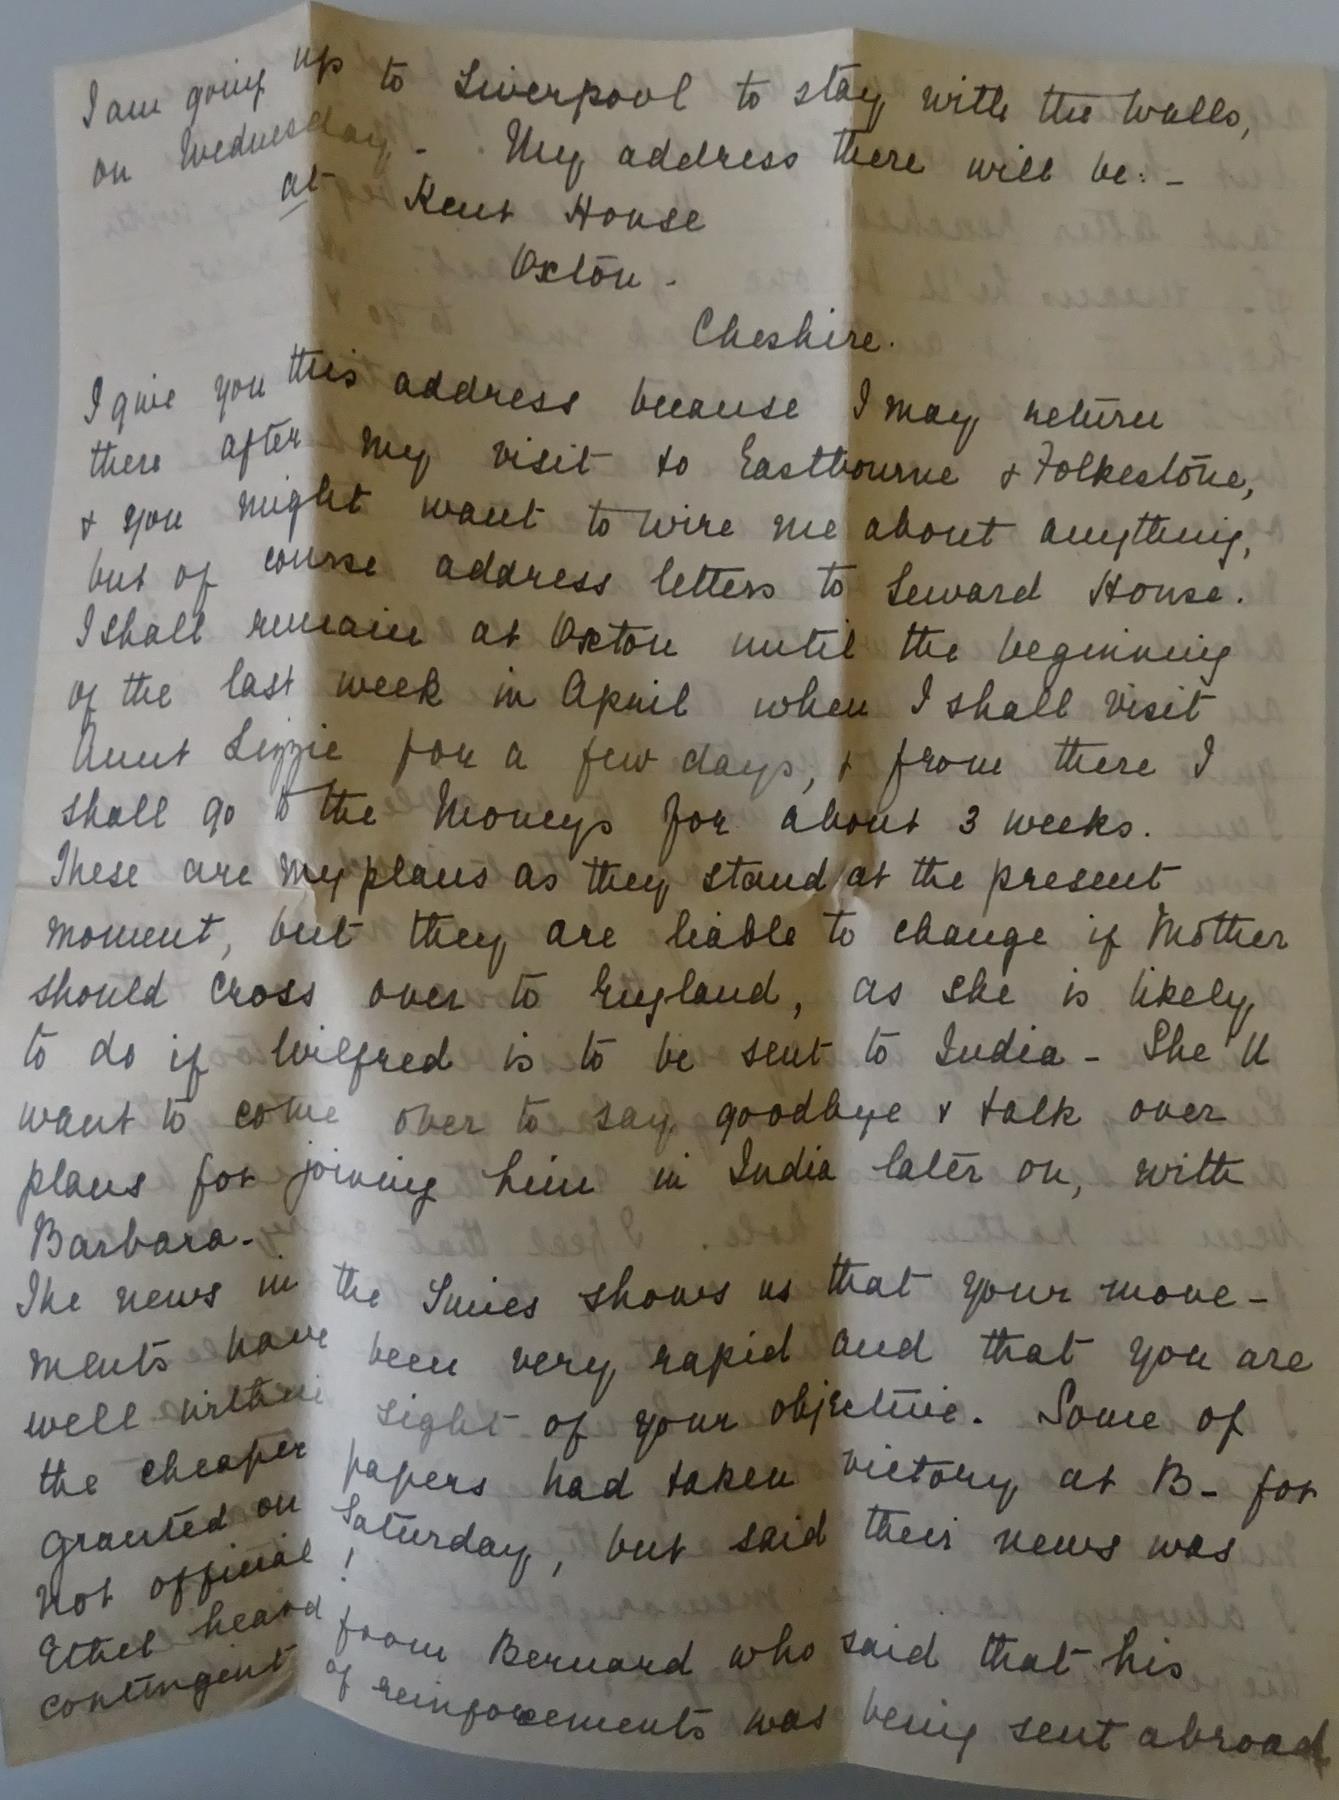 I am going up to Liverpool to stay with the Walls,
on Wednesday - My address there will be: -
at Kent House
Oxton -
Cheshire.
I give you this address because I may return
there after my visit to Eastbourne & Folkestone,
& you might want to wire me about anything,
but of course address letters to Seward House.
I shall remain at Oxton until the beginning
of the last week in April when I shall visit
Aunt Lizzie for a few days, & from there I
shall go to the Moneys for about 3 weeks.
These are my plans as they stand at the present
moment, but they are liable to change if Mother
should cross over to England, as she is likely
to do if Wilfred is to be sent to India - She'll
want to come over to say goodbye & talk over
plans for joining him in India later on, with
Barbara -
The news in the Times shows us that your move-
ments have been very rapid and that you are
well within sight of your objective. Some of
the cheaper papers had taken victory at B- for
granted on Saturday, but said their news was
not official!
Ethel heard from Bernard who said that his
contingent of reinforcements was being sent abroad